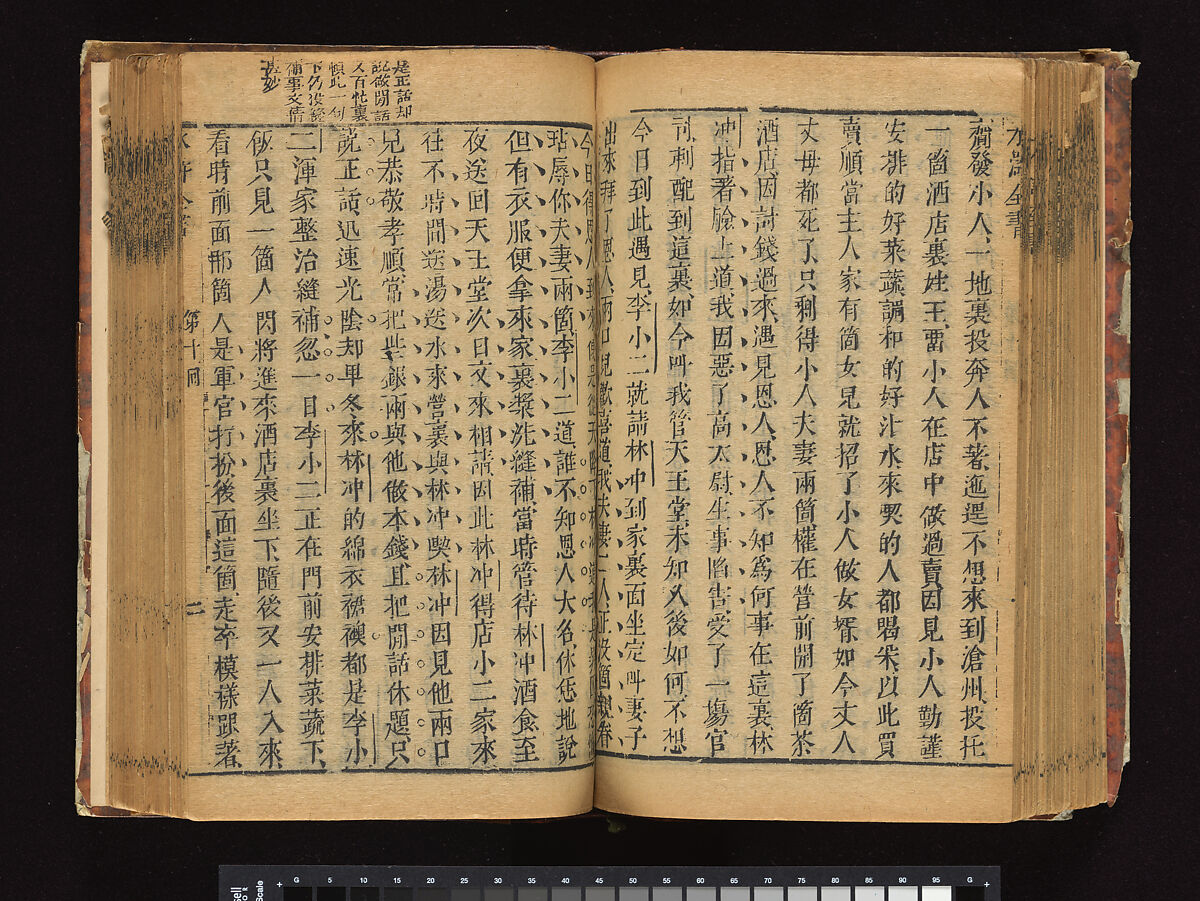 水滸全書
齎發小人、一地裏投奔人不著、迤邐不想來到滄州、投托
一箇酒店裏姓王、畱小人在店中做過賣、因見小人勤謹
安排的好菜蔬、調和的好汁水、來喫的人都喝采、以此買
賣順當、主人家有箇女兒、就招了小人做女壻、如今丈人
丈母都死了、只剩得小人夫妻兩箇、權在營前開了箇茶
酒店、因討錢過來、遇見恩人、恩人不知為何事在這裏、林
冲指著臉上道、我因惡了高太尉、生事陷害、受了一塲官
司、刺配到這裏、如今叫我管天王堂、未知久後如何、不想
今日到此遇見、李小二就請林冲到家裏面坐定、叫妻子
出來拜了恩人、兩口兒歡喜道、我夫妻二人、正沒箇親眷
是正話却
說做閒話
又百忙裏
頓此一句
下仍没縫
補事文情
妙
今日得恩人到來、便是從天降下、林冲道、我是
玷辱你夫妻兩箇、李小二道、誰不知恩人大名、休恁地說
但有衣服、便拿來家裏漿洗縫補、當時管待林冲酒食、至
夜送回天王堂、次日又來相請、因此林冲得店小二家來
往、不時間送湯送水來營裏與林冲喫、林冲因見他兩口
兒恭敬孝順、常把些銀兩與他做本錢、且把閒話休題、只
說正話、迅速光陰、却早冬來、林冲的綿衣裙襖都是李小
二渾家整治縫補、忽一日、李小二正在門前安排菜蔬下
飯、只見一箇人閃將進來、酒店裏坐下、隨後又一人入來
看時、前面那箇人是軍官打扮、後面這箇、走卒模樣、跟著
水滸全書 第十回 二